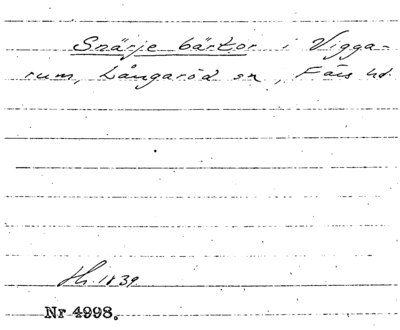 Snärje bärtor i Vigga-
rum, Långaröd sn, Färs hd.
Hs. 1839
Nr 4998.